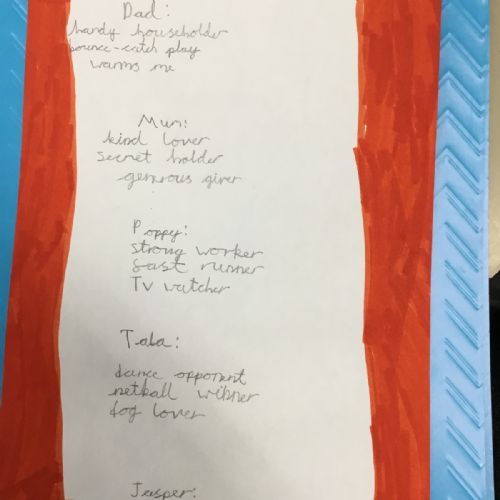 Dad:
handy householder
bounce-catch play
warms me
Mum:
kind lover
secret holder
generous giver
Poppy:
strong worker
fast runner
TV watcher
Tala:
dance opponent
netball winner
dog lover
Jasper: